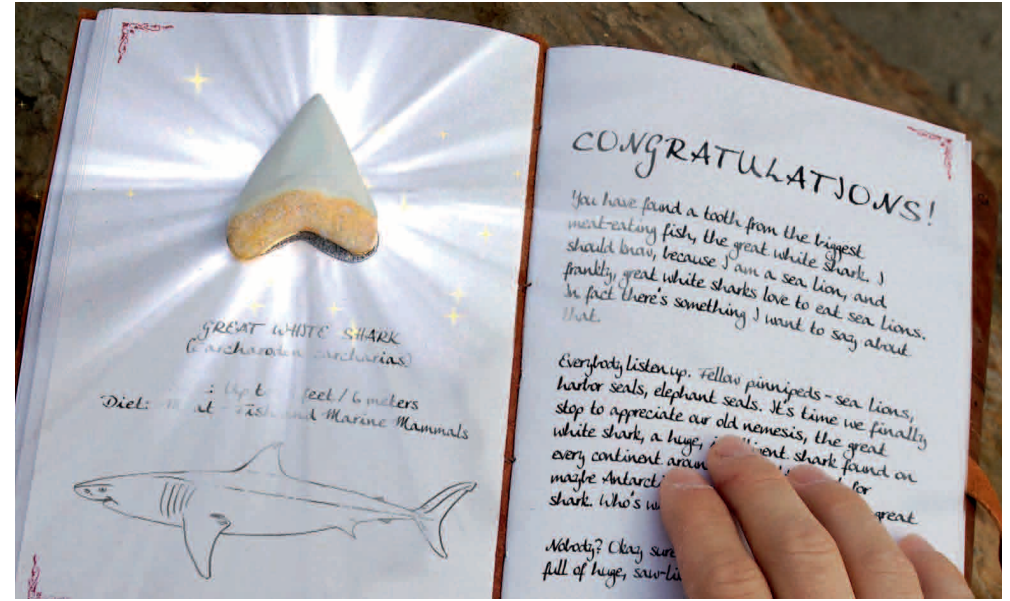 GREAT WHITE SHARK
(Carcharodon carcharias)
: Up to feet / 6 meters
Diet: Meat - Fish and Marine Mammals
CONGRATULATIONS!
You have found a tooth from the biggest
meat-eating fish, the great white shark. I
should know, because I am a sea lion, and
frankly, great white sharks love to eat sea lions.
In fact there's something I want to say about
that.
Everybody listen up. Fellow pinnipeds - sea lions,
harbor seals, elephant seals. It's time we finally
stop to appreciate our old nemesis, the great
white shark, a huge, shark found on
every continent
maybe for
shark. Who's great
Nobody? Okay, sure
full of huge,